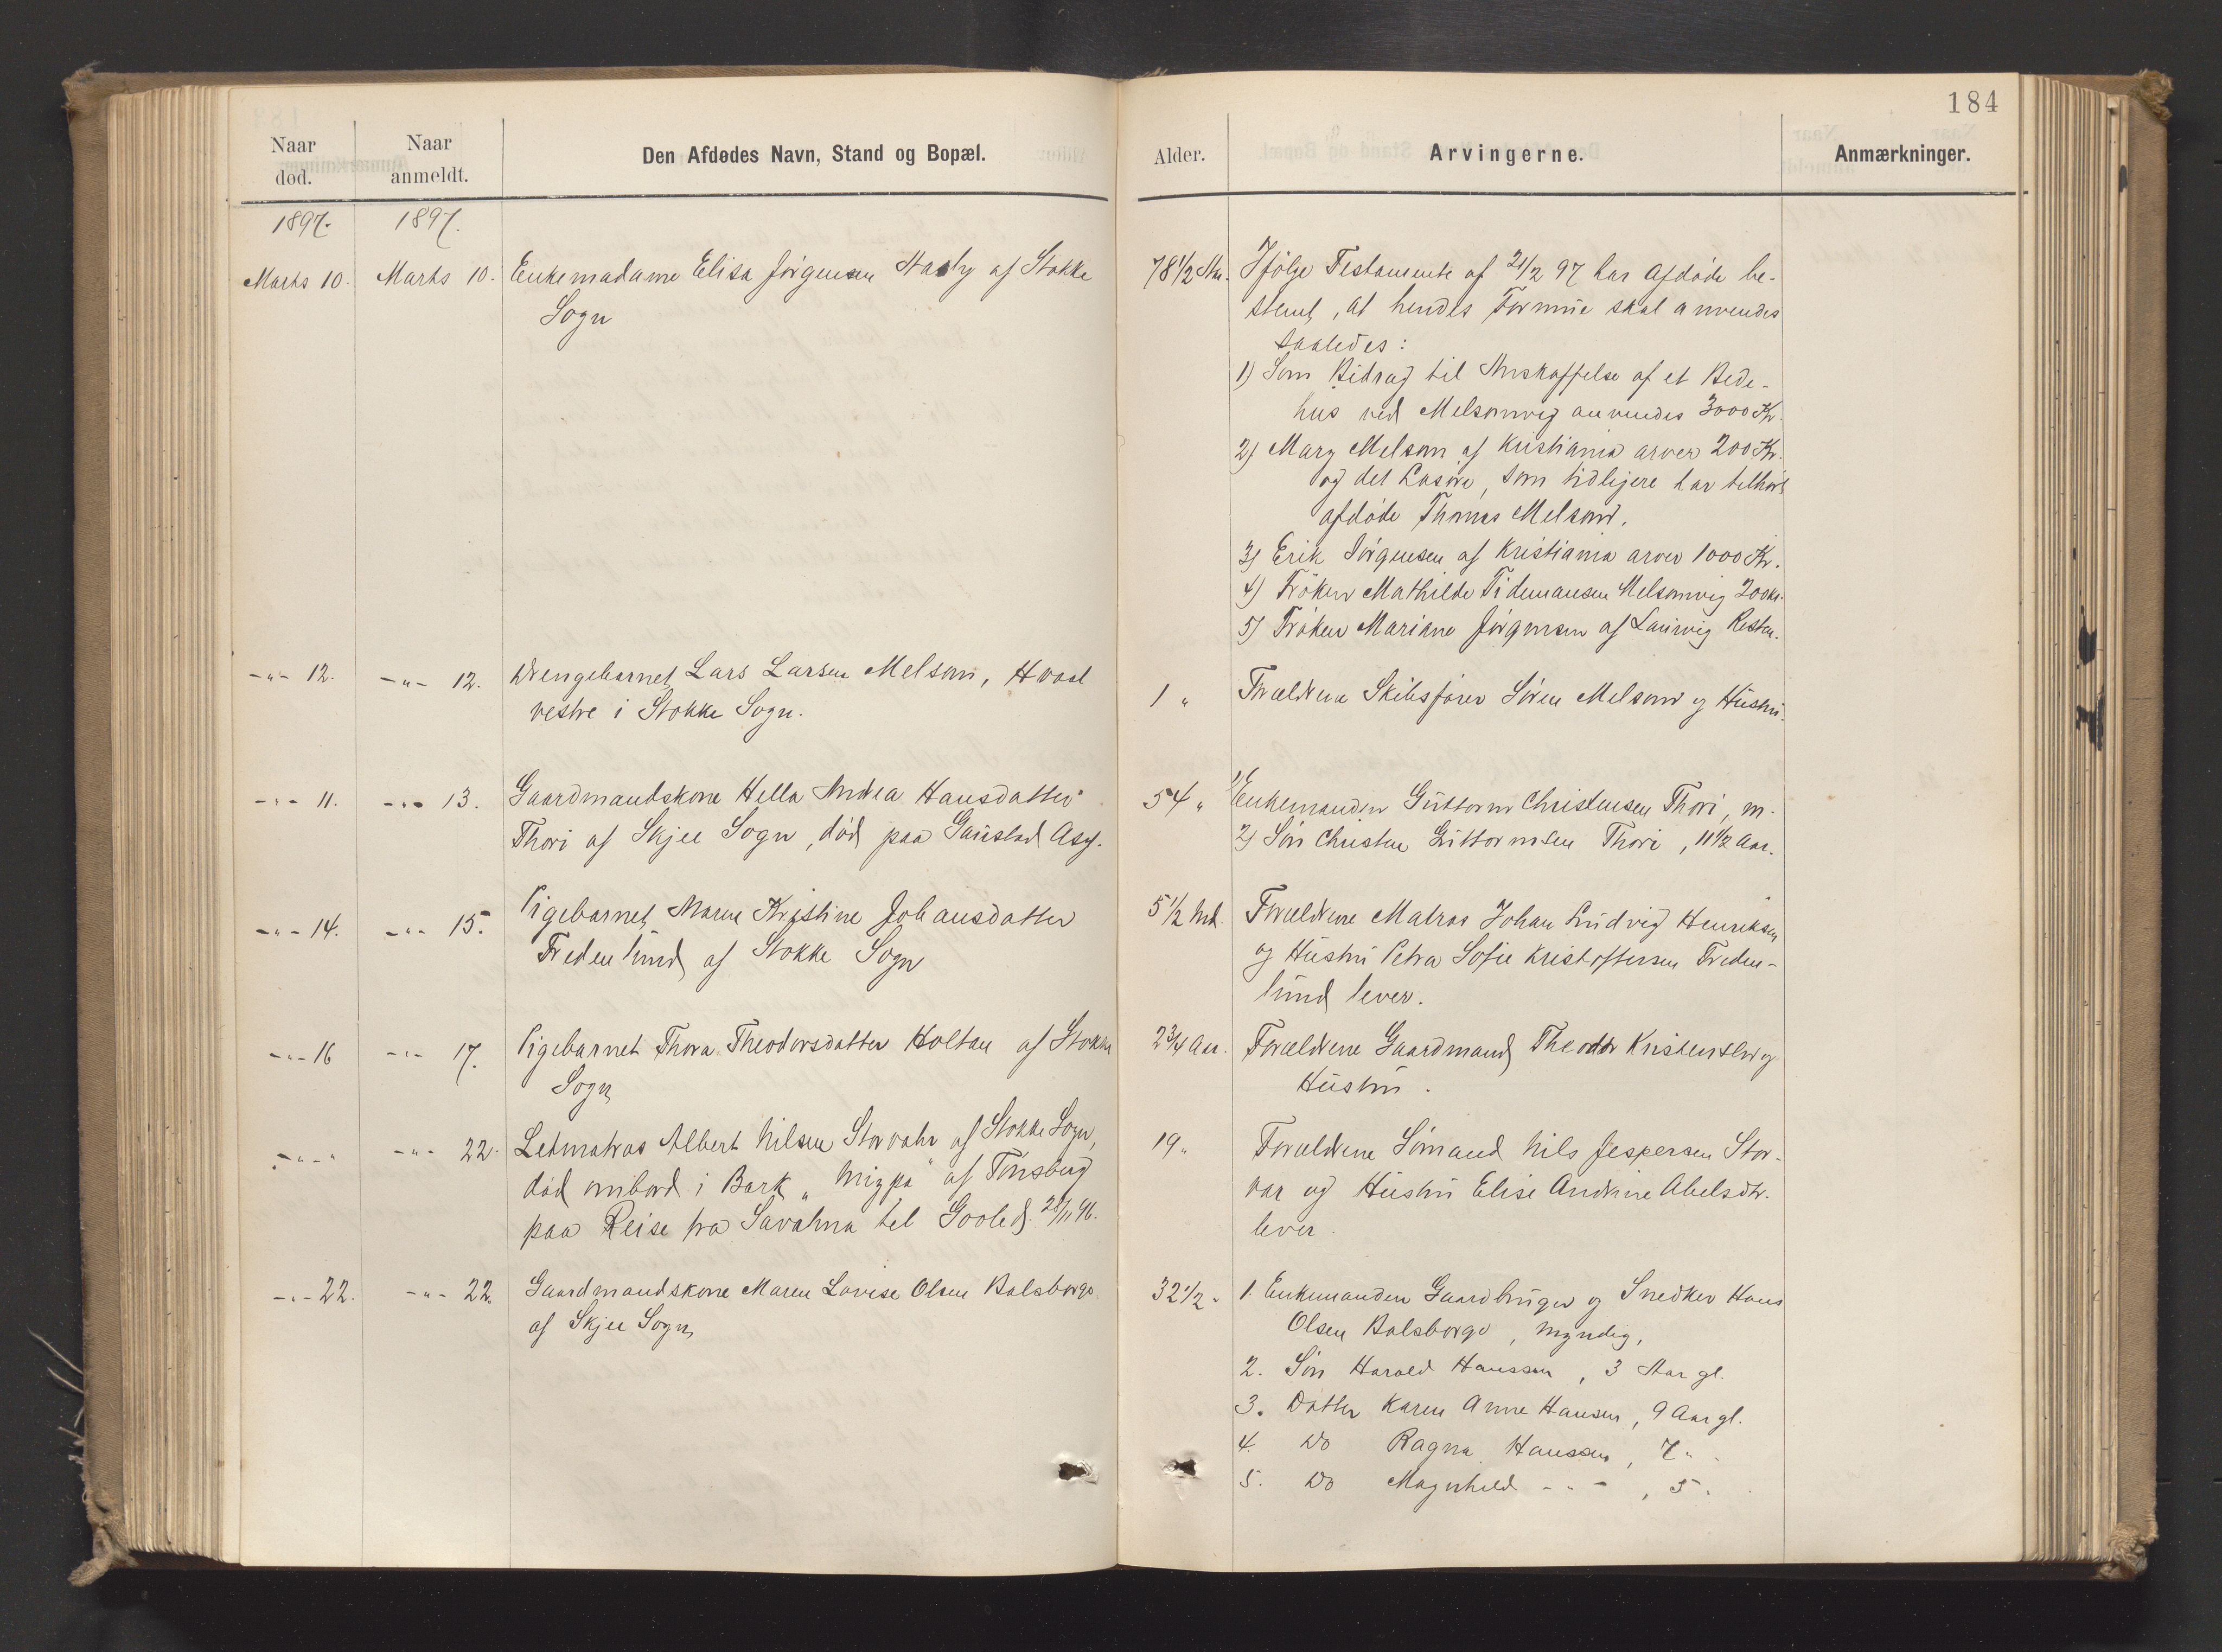 184
Naar død.
Naar anmeldt.
Den Afdødes Navn, Stand og Bopæl.
Alder.
Arvingerne.
Anmærkninger.
1897.
1897.
Marts 10.
Marts 10.
Enkemadame Elisa Jørgensen af Stokke
Sogn
78 1/2 Aar.
Ifølge Testamente af 21/2 97 har Afdøde be-
stemt, at hendes Formue skal anvendes
saaledes:
1) Som Bidrag til Anskaffelse af et Bede-
hus ved Melsomvig anvendes 3000 Kr.
2) Mary Melsom af Kristiania arver 200 Kr.
og det Løsøre, som tidligere har tilhørt
afdøde Thomas Melsom.
3) Erik Jørgensen af Kristiania arver 1000 Kr.
4) Frøken Mathilde Tidemansen Melsomvig 200 Kr.
5) Frøken Mariane Jørgensen af Laurvig Resten.
-"- 12.
-"- 12.
Drengebarnet Lars Larsen Melsom, Hvaal
vestre i Stokke Sogn.
1 "
Forældrene Skibsfører Søren Melsom og Hustru.
-"- 11.
-"- 13.
Gaardmandskone Hella Andrea Hansdatter
Thori af Skjee Sogn, død paa Gaustad Asyl.
54 "
1) Enkemanden Guttorm Christensen Thori, m.
2) Søn Christen Guttormsen Thori, 11 1/2 Aar.
-"- 14.
-"- 15.
Pigebarnet Maren Kristine Johansdatter
Fredenlund af Stokke Sogn
5 1/2 Md.
Forældrene Matros Johan Ludvig Henriksen
og Hustru Petra Sofie Kristoffersen Freden-
lund lever.
-"- 16
-"- 17.
Pigebarnet Thora Theodorsdatter Holtan af Stokke
Sogn
2 3/4 Aar.
Forældrene Gaardmand Theodor Kristensen og
Hustru.
-"- "
-"- 22.
Letmatros Albert Nilsen Storvahr af Stokke Sogn,
død ombord i Bark "Mizpa" af Tønsberg
paa Reise fra Savahna til Goole d. 28/11 96.
19 "
Forældrene Sømand Nils Jespersen Stor-
var og Hustru Elise Andrine Abelsdtr.
lever.
-"- 22.
-"- 22.
Gaardmandskone Maren Lovise Olsen Bolsborge
af Skjee Sogn
32 1/2 "
1. Enkemanden Gaardbruger og Snedker Hans
Olsen Bolsborge, myndig,
2. Søn Harald Hanssen, 3 Aar gl.
3. Datter Karen Anne Hansen, 9 Aar gl.
4. Do Ragna Hanssen, 7 "
5. Do Magnhild -"-, 5 "